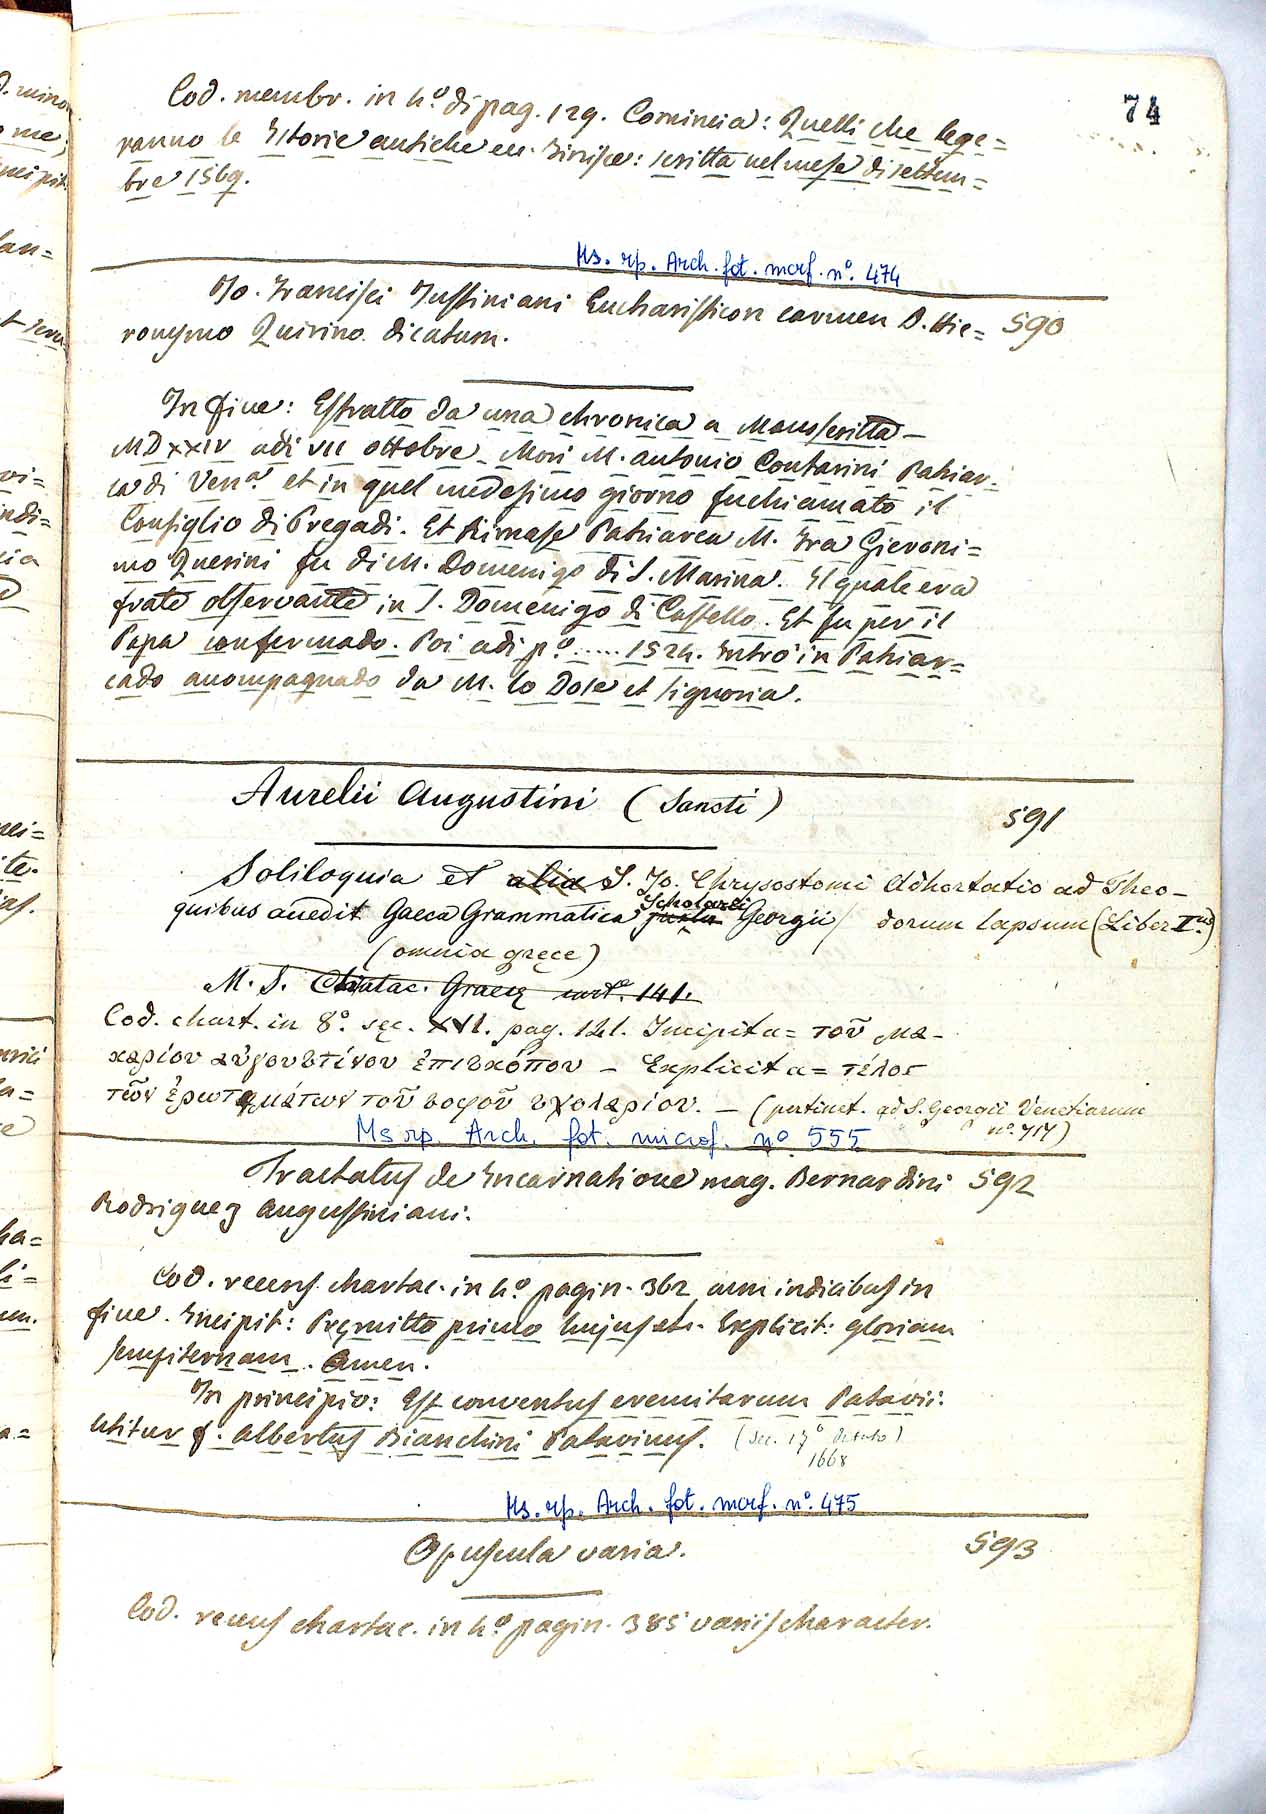 74
Cod. membr. in 4.º di pag. 129. Comincia: Quelli che lege=
ranno le Istorie antiche ecc. Finisce: scritta nel mese di settem=
bre 1569.
Ms. rp. Arch. fot. mcrf. nº. 474
Jo. Francisci Justiniani Eucharisticon carmen D. Hie= 590
ronymo Quirino dicatum.
In fine: Estratto da una chronica a Manoscritta –
MDXXIV adi VII ottobre. Morì M. Antonio Contarini Patriar=
ca di Ven.ª et in quel medesimo giorno fu chiamato il
Consiglio di Pregadi. Et Rimase Patriarca M. Fra Gieroni=
mo Querini fu di M. Domenigo di S. Marina. El quale era
frate osservante in S. Domenigo di Castello. Et fu per il
Papa confermado. Poi adi p.º ..... 1524. Entrò in Patriar=
cado accompagnado da M. lo Dose et signoria.
Aurelii Augustini (Sancti) 591
Soliloquia et alia S. Jo. Chrysostomi Adhortatio ad Theo-
dorum lapsum (Liber I.us)
quibus accedit Gaeca Grammatica Scholarii Georgii /
(omnia gręce)
M. S. Chatac. Graecę cart.º 141.
Cod. chart. in 8.º sęc. XVI. pag. 121. Incipit a = τοῦ μα-
καρίου αὐγουστίνου ἐπισκόπου – Explicit a = τέλος
τῶν ἐρωτημάτων τοῦ σοφοῦ σχολαρίου. – (pertinet ad S. Georgii Venetiarum
nº. 717)
Ms rp. Arch. fot. microf. nº 555
Tractatus de Incarnatione mag. Bernardini 592
Rodriguez Augustiniani.
Cod. recens chartac. in 4.º pagin. 362, cum indicibus in
fine. Incipit: Pręmitto primo hujus etc. Explicit: gloriam
sempiternam. Amen.
In principio: Est conventus eremitarum Patavii.
Utitur f. Albertus Bianchini Patavinus. (Sec. 17º
1668
Ms. rp. Arch. fot. mcrf. nº. 475
Opuscula varia. 593
Cod. recens chartac. in 4.º pagin. 385 variis character.